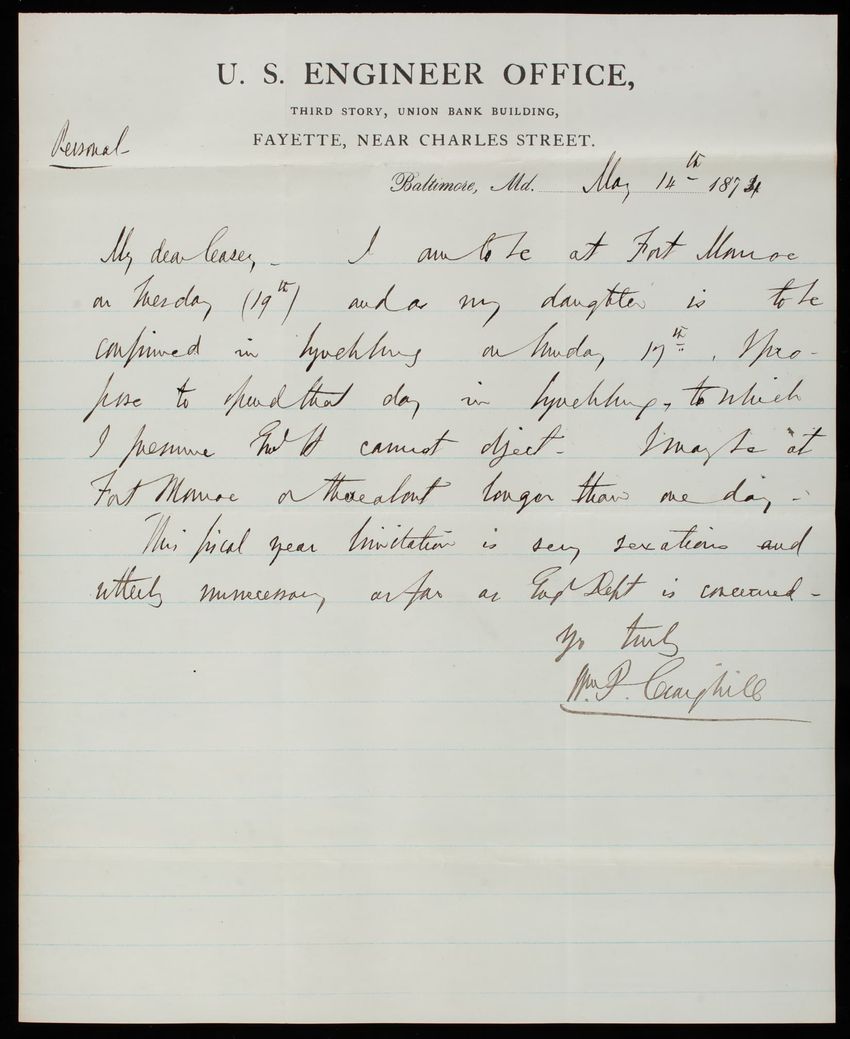 U. S. ENGINEER OFFICE,
THIRD STORY, UNION BANK BUILDING,
FAYETTE, NEAR CHARLES STREET.
Personal
Baltimore, Md. May 14th 1874
My dear Casey,- I am to be at Fort Monroe
on Tuesday (19th) and as my daughter is to be
confirmed in Lynchburg on Sunday 17th, I pro-
pose to spend that day in Lynchburg, to which
I presume Genl H cannot object- I may be at
Fort Monroe or thereabout longer than one day-
This fiscal year limitation is very vexatious and
utterly unnecessary as far as Engr Dept is concerned-
Yrs truly
Wm. P. Craighill